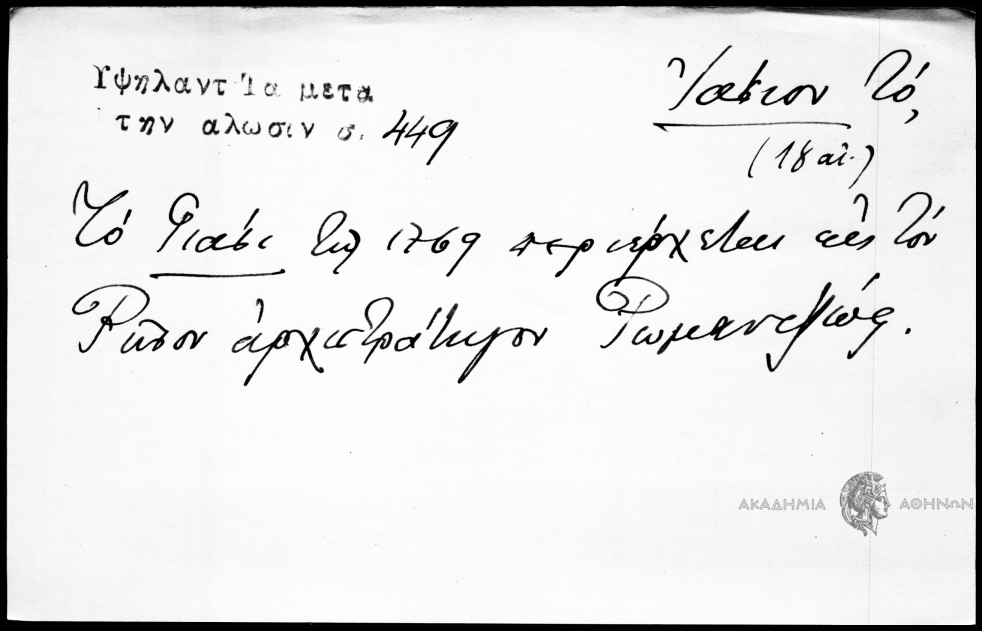 Υψηλαντ Ἰα μετα
την αλωσιν σ. 449
Ἰάσιον Τό,
(18 αἰ.)
Τό Γιάσι τῷ 1769 περιέρχεται εἰς τόν
Ρῶσον ἀρχιστράτηγον
ΑΚΑΔΗΜΙΑ ΑΘΗΝΩΝ